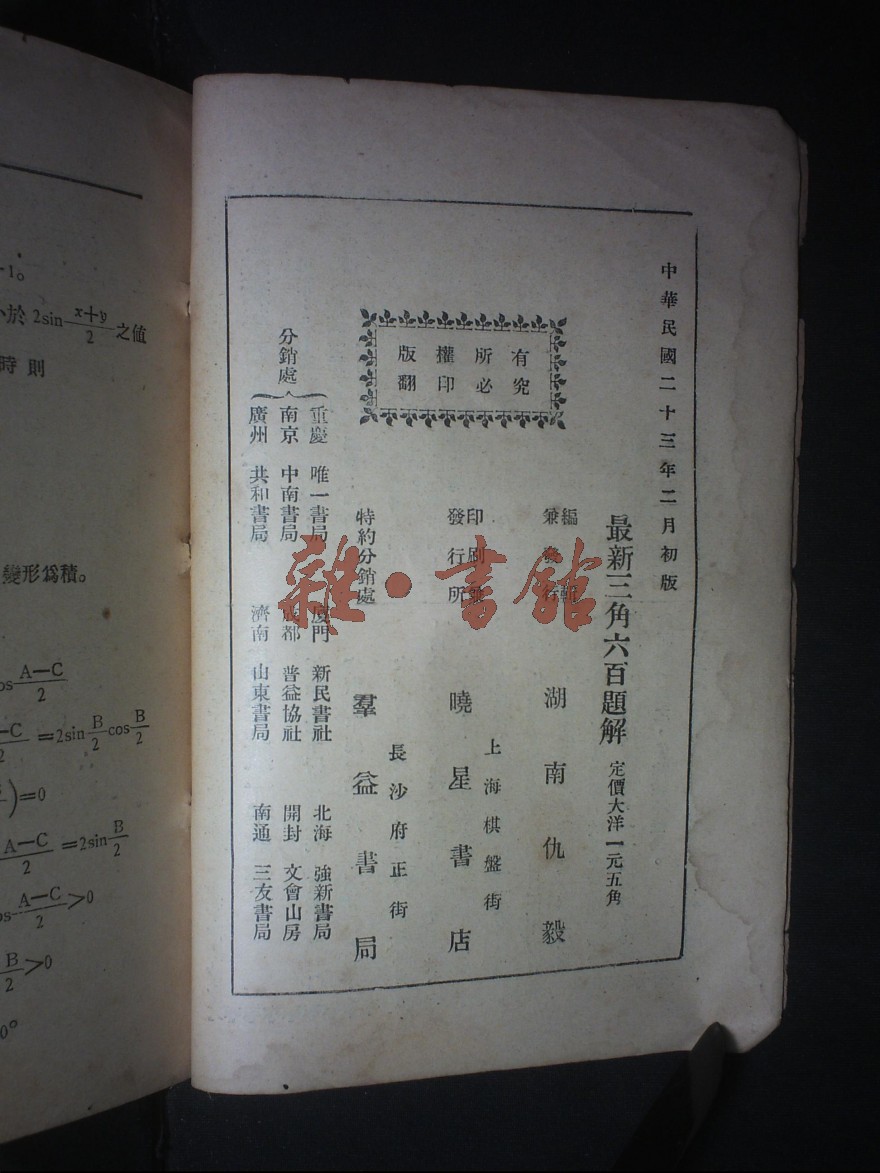 中華民國二十三年二月初版
最新三角六百題解 定價大洋一元五角
編輯兼發行 湖南仇毅
印刷兼發行所 上海棋盤街 曉星書店
特約分銷處 長沙府正街 羣益書局
有所權版
究必印翻
分銷處
重慶 唯一書局 廈門 新民書社 北海 強新書局
南京 中南書局 成都 普益協社 開封 文會山房
廣州 共和書局 濟南 山東書局 南通 三友書局
雜·書館
-1。
小於 2sin (x+y)/2 之值
時則
變形爲積。
os (A—C)/2
—C/2 =2sin B/2 cos B/2
)=0
(A—C)/2 =2sin B/2
os (A—C)/2 >0
B/2 >0
0°